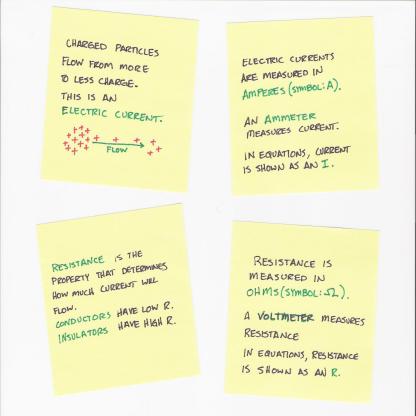 CHARGED PARTICLES
FLOW FROM MORE
TO LESS CHARGE.
THIS IS AN
ELECTRIC CURRENT.
FLOW
ELECTRIC CURRENTS
ARE MEASURED IN
AMPERES (SYMBOL: A).
AN AMMETER
MEASURES CURRENT.
IN EQUATIONS, CURRENT
IS SHOWN AS AN I.
RESISTANCE IS THE
PROPERTY THAT DETERMINES
HOW MUCH CURRENT WILL
FLOW.
CONDUCTORS HAVE LOW R.
INSULATORS HAVE HIGH R.
RESISTANCE IS
MEASURED IN
OHMS (SYMBOL: Ω).
A VOLTMETER MEASURES
RESISTANCE
IN EQUATIONS, RESISTANCE
IS SHOWN AS AN R.